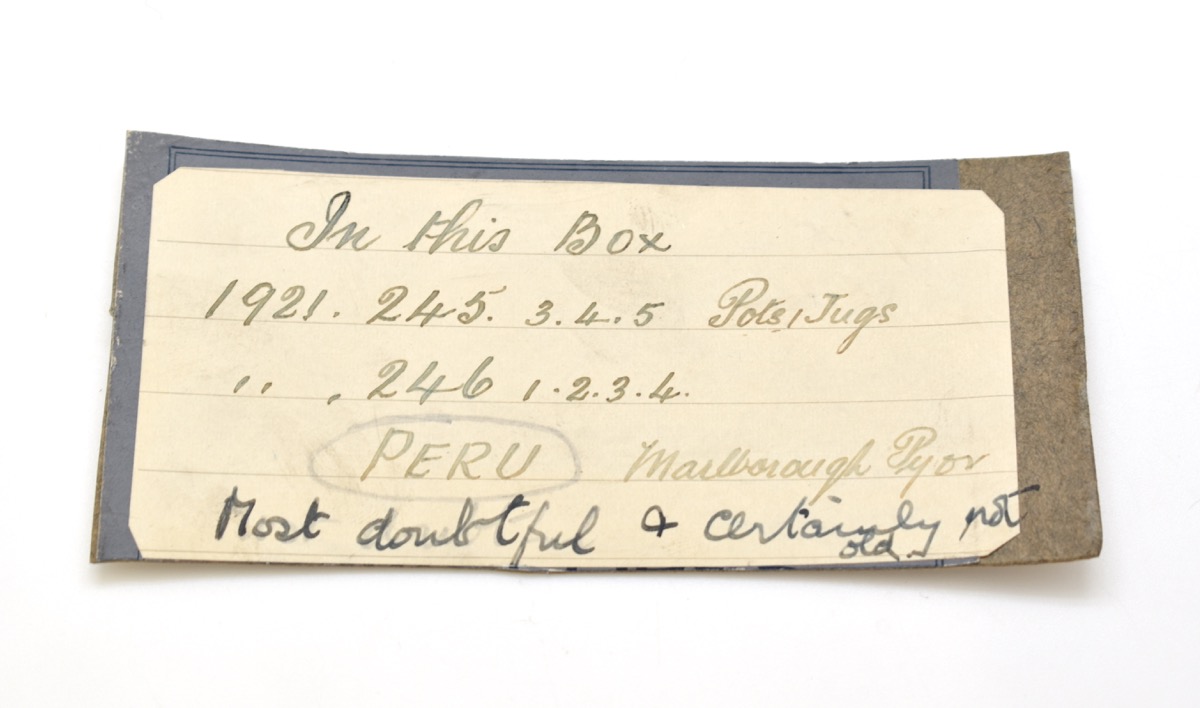 In this Box
1921. 245. 3.4.5 Pots, Jugs
" . 246 1.2.3.4.
PERU Marlborough Pyor
Most doubtful & certainly not
old.